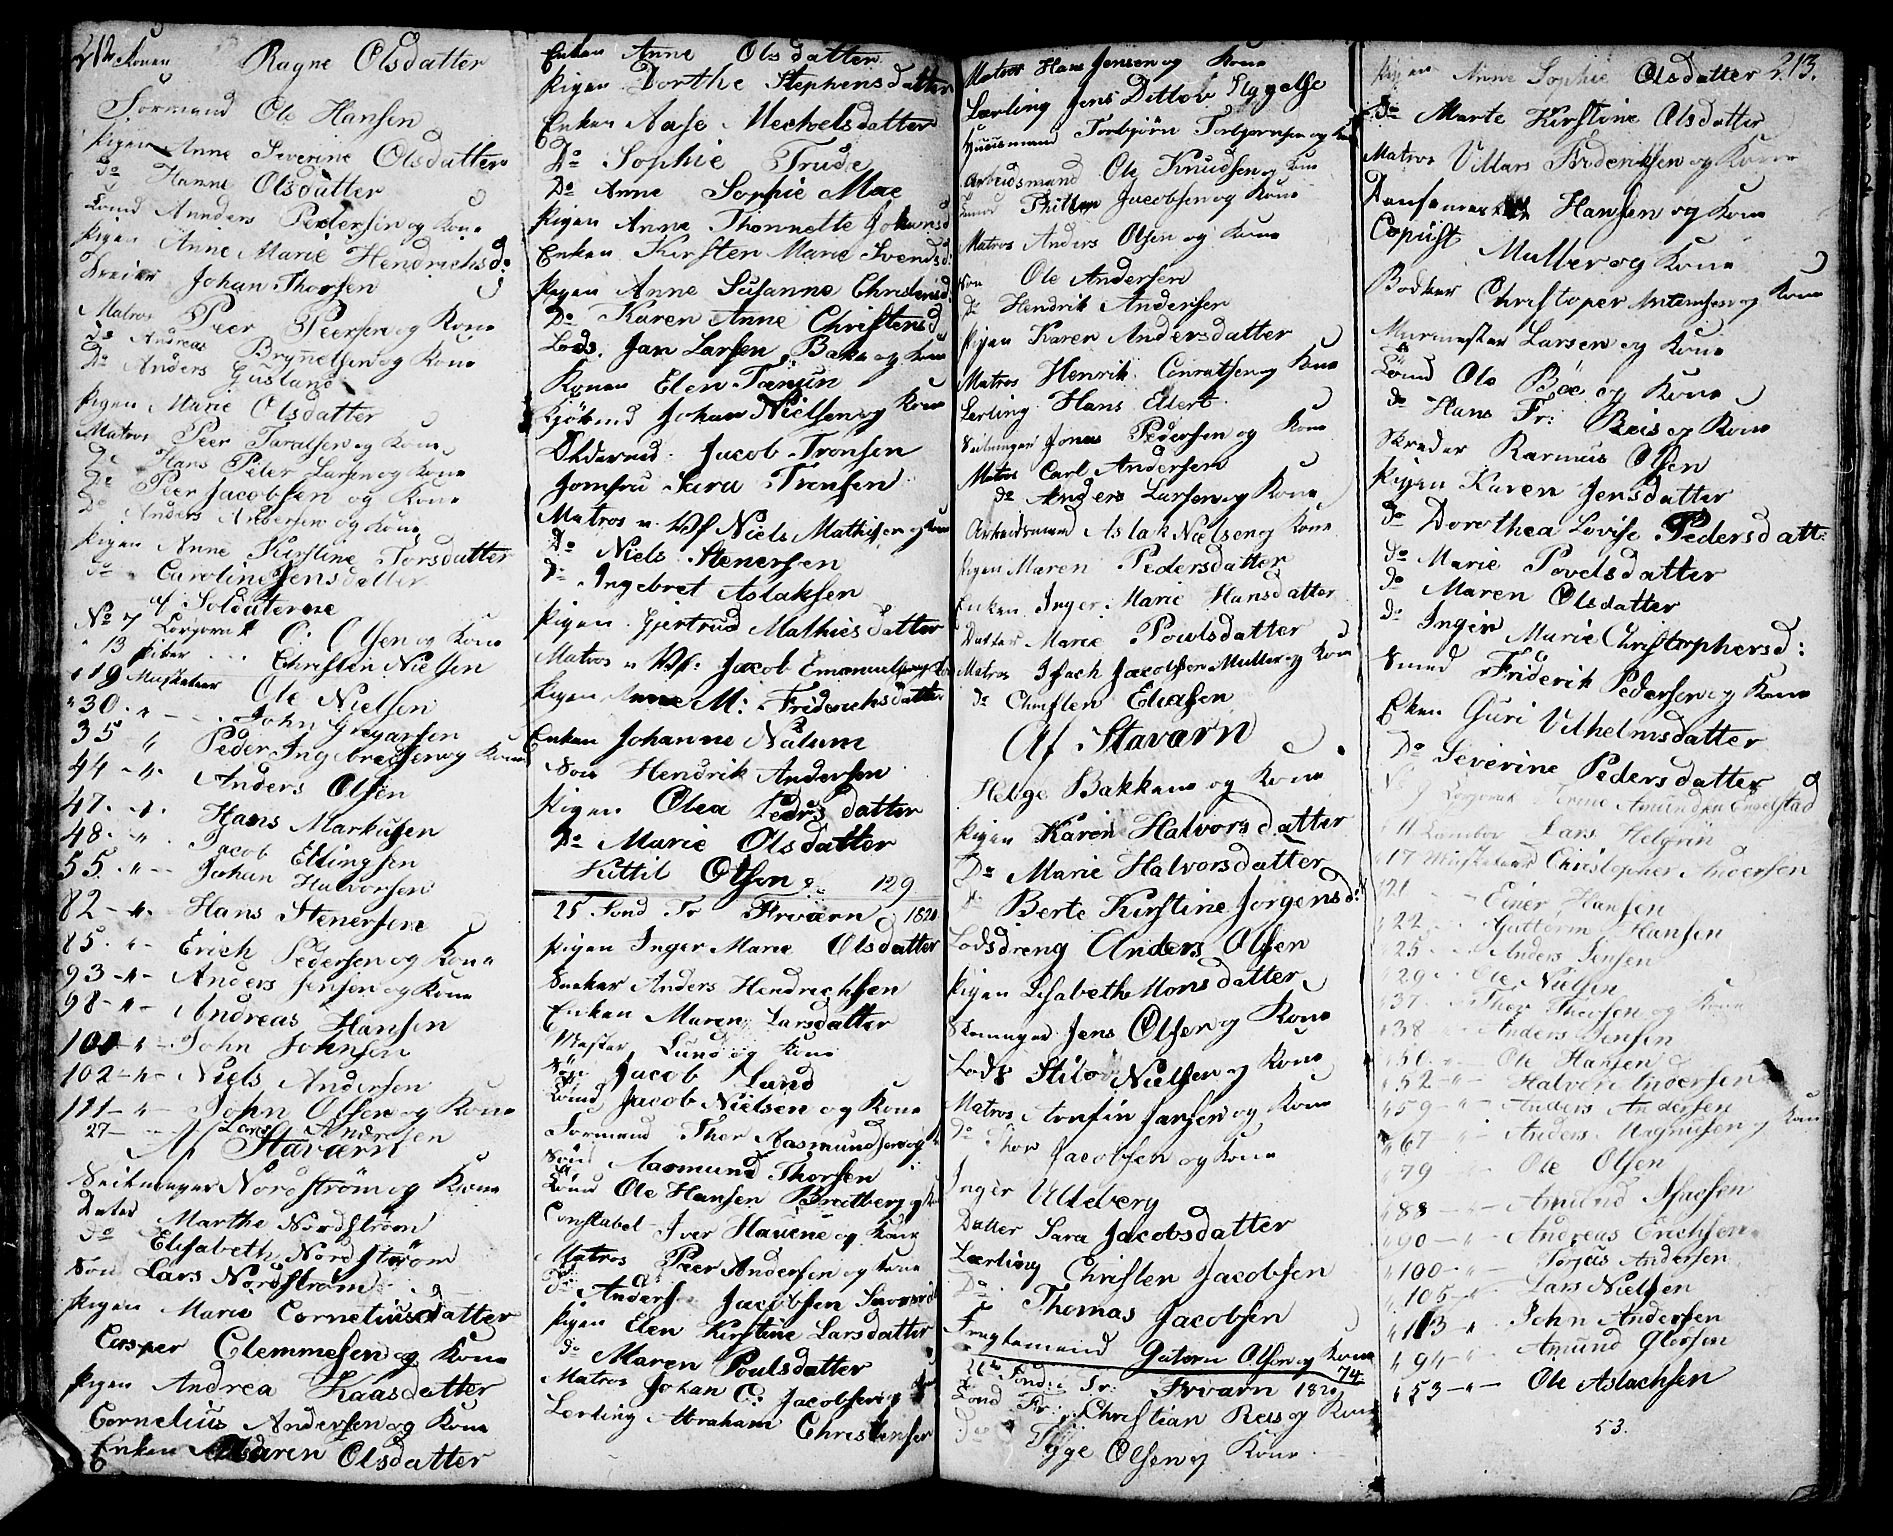 212 Konen Ragne Olsdatter
Formand Ole Hansen
Pigen Anne Severine Olsdatter
Do Hanne Olsdatter
Annders Pedersen og Kone
Pigen Anne Marie Hendrichsd:
Dreier Johan Thorsen
Matros Peer Peersen og Kone
Do Andreas Brynelsen og Kone
Do Anders Gusland
Pigen Marie Olsdatter
Matros Peer Taralsen og Kone
Do Hans Peter Larsen og Kone
De Peer Jacobsen og Kone
Do Anders Andersen og Kone
Pigen Anne Kirstine Torsdatter
Do Caroline Jensdatter
af Soldaterne
No 7 Corporal O: Olsen og Kone
" 13 Piber Christen Nielsen
" 19 Musketeer Ole Nielsen
" 30 - " - John Gregarsen
35 " Peder Ingebretsen og Kone
44 - " - Anders Olsen
47 - " - Hans Markusen
48 - " - Jacob Ellingsen
55 - " - Johan Halvorsen
82 - " - Hans Stenersen
85 - " - Erich Pedersen og Kone
93 - " - Anders Jensen og Kone
98 - " - Andreas Hansen
101 - " - John Johnsen
102 - " - Niels Andersen
111 - " - John Olsen og Kone
27 - Lars Andersen
Af Staværn
Nordstrøm og Kone
Dater Marthe Nordstrøm
do Elisabeth Nordstrøm
Søn Lars Nordstrøm
Pigen Marie Corneliusdatter
Casper Clemmesen og Kone
Pigen Andrea Kaasdatter
Cornelius Andersen og Kone
Enken Maren Olsdatter
Enken Anne Olsdatter
Pigen Dorthe Stephensdatter
Enken Aase Mechelsdatter
Do Sophie Trude
Do Anne Sophie Moe
Pigen Anne Thonnette Johansd
Enken Kirsten Marie Svendsd:
Pigen Anne Susanne Christensd
Do Karen Anne Christensd
Lods. Jan Larsen Bakke og Kone
Konen Elen
Johan Nielsen og Kone
Jacob Tronsen
Jomfru Sara Tronsen
Matros Niels Mathisen og Kone
Do Niels Stenersen
Do Ingebret Aslaksen
Pigen Gjertrud Mathiesdatter
Matros Jacob Emanuelsen og Kone
Pigen Anne M: Friderichsdatter
Enken Johanne Nalum
Søn Hendrik Andersen
Pigen Olea Pedersdatter
Do Marie Olsdatter
Kittil Olsen 129
25 Sønd Tr Frværn 1820
Pigen Inger Marie Olsdatter
Sneker Anders Hendrichsen
Enken Maren Larsdatter
Mester Lund og Kone
Søn Jacob Lund
Jacob Nielsen og Kone
Formand Thor Aasmundsen og
Søn Aasmund Thorsen
Ole Hansen Bredberg og
Constabel Iver Hauene og Kone
Matros Peer Andersen og Kone
Do Anders Jacobsen
Pigen Elen Kirstine Larsdatter
do Maren Poulsdatter
Matros Johan C: Jacobsen og Kone
Lerling Abraham Christensen
Matros Hans Jensen og Kone
Lærling Jens Ditlev Hyggelse
Huusmand Torbjørn Torbjørnsen og Kone
Arbeidsmand Ole Knudsen og Kone
Jacobsen og Kone
Matros Anders Olsen og Kone
Søn Ole Andersen
Do Hendrik Andersen
Pigen Karen Andersdatter
Matros Henrik Conratsen og Kone
Lerling Hans Edert
Jonas Pedersen og Kone
Matros Carl Andersen
do Anders Larsen og Kone
Arbeidsmand Aslak Nielsen og Kone
Pigen Maren Pedersdatter
Enken Inger Marie Hansdatter
Datter Marie Poulsdatter
Matros Isach Jacobsen Muller og Kone
do Christen Eliasen
Af Staværn
Helge Bakkene og Kone
Pigen Karen Halvorsdatter
Do Marie Halvorsdatter
Do Berte Kirstine Jørgensd:
Lodsdreng Anders Olsen
Pigen Lisabeth Monsdatter
Jens Olsen og Kone
Lods Nielsen og Kone
Matros Arnfin Jansen og Kone
Do Thor Jacobsen og Kone
Inger Ulleberg
Datter Sara Jacobsdatter
Lærling Christen Jacobsen
Do Thomas Jacobsen
Fragtemand Gutorm Olsen og Kone
74
26 Sønd: Tr: Frværn 1820
Fr: Christian Reis og Kone
Do Tygge Olsen og Kone
Pigen Anne Sophie Olsdatter 213.
Do Marte Kirstine Olsdatter
Matros Villars Frideriksen og Kone
Hansen og Kone
Copiist Muller og Kone
Bødker Christoper Mortensen og Kone
Murmester Larsen og Kone
Ole Bøe og Kone
do Hans Fr: Reis og Kone
Skreder Rasmus Olsen
Pigen Karen Jensdatter
Do Dorothea Lovise Pedersdatt:
do Marie Povelsdatter
do Maren Olsdatter
do Inger Marie Christophersd:
Smed Friderik Pedersen og Kone
Eken Guri Vilhelmsdatter
Do Severine Pedersdatter
No Corporal Amundsen Engelstad
" 11 Tambor Lars Helgrin
" 17 Musketeer Christopher Andersen
" 21 Einer Hansen
" 22 Guttorm Hansen
" 25 Anders Jensen
" 29 Ole Nielsen
" 37 Thor Theosen og Kone
" 38 Anders Jensen
" 50 Ole Hansen
" 52 - " - Halvor Andersen
" 59 - " - Anders Andersen
" 67 " Anders Magnusen og Kone
" 79 " - Ole Olsen
" 88 - " - Amund Isacsen
" 90 - " - Andreas Erichsen
" 100 - " - Torjus Andersen
" 105 - " - Lars Nielsen
" 113 - " John Andersen
" 94 - " - Amund Olavsen
" 53 - " - Ole Aslachsen
53.